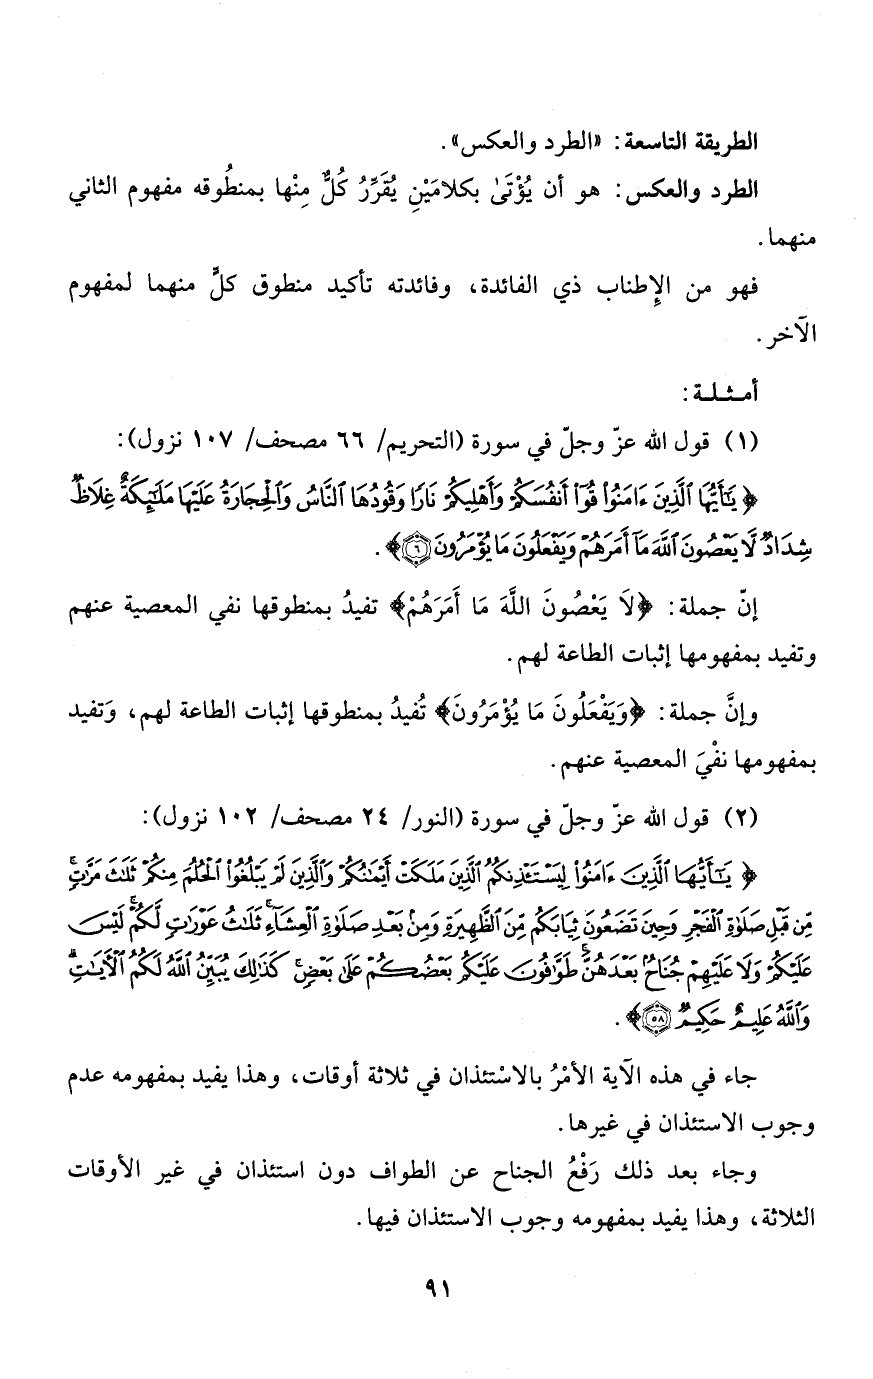 الطريقة التاسعة: «الطرد والعكس».
الطرد والعكس: هو أن يُؤْتَىٰ بكلامَيْنِ يُقَرِّرُ كُلٌّ مِنْها بمنطُوقه مفهوم الثاني
منهما.
فهو من الإِطناب ذي الفائدة، وفائدته تأكيد منطوق كلٍّ منهما لمفهوم
الآخر.
أمـثـلـة:
(١) قول الله عزّ وجلّ في سورة (التحريم/ ٦٦ مصحف/ ١٠٧ نزول):
﴿يَٰٓأَيُّهَا ٱلَّذِينَ ءَامَنُوا۟ قُوٓا۟ أَنفُسَكُمْ وَأَهْلِيكُمْ نَارًا وَقُودُهَا ٱلنَّاسُ وَٱلْحِجَارَةُ عَلَيْهَا مَلَٰٓئِكَةٌ غِلَاظٌ
شِدَادٌ لَّا يَعْصُونَ ٱللَّهَ مَآ أَمَرَهُمْ وَيَفْعَلُونَ مَا يُؤْمَرُونَ ٦﴾.
إنّ جملة: ﴿لاَ يَعْصُونَ اللَّهَ مَا أَمَرَهُمْ﴾ تفيدُ بمنطوقها نفي المعصية عنهم
وتفيد بمفهومها إثبات الطاعة لهم.
وإنَّ جملة: ﴿وَيَفْعَلُونَ مَا يُؤْمَرُونَ﴾ تُفيدُ بمنطوقها إثبات الطاعة لهم، وَتفيد
بمفهومها نفْيَ المعصية عنهم.
(٢) قول الله عزّ وجلّ في سورة (النور/ ٢٤ مصحف/ ١٠٢ نزول):
﴿يَٰٓأَيُّهَا ٱلَّذِينَ ءَامَنُوا۟ لِيَسْتَـْٔذِنكُمُ ٱلَّذِينَ مَلَكَتْ أَيْمَٰنُكُمْ وَٱلَّذِينَ لَمْ يَبْلُغُوا۟ ٱلْحُلُمَ مِنكُمْ ثَلَٰثَ مَرَّٰتٍ ۚ
مِّن قَبْلِ صَلَوٰةِ ٱلْفَجْرِ وَحِينَ تَضَعُونَ ثِيَابَكُم مِّنَ ٱلظَّهِيرَةِ وَمِنۢ بَعْدِ صَلَوٰةِ ٱلْعِشَآءِ ۚ ثَلَٰثُ عَوْرَٰتٍ لَّكُمْ ۚ لَيْسَ
عَلَيْكُمْ وَلَا عَلَيْهِمْ جُنَاحٌۢ بَعْدَهُنَّ ۚ طَوَّٰفُونَ عَلَيْكُم بَعْضُكُمْ عَلَىٰ بَعْضٍ ۚ كَذَٰلِكَ يُبَيِّنُ ٱللَّهُ لَكُمُ ٱلْءَايَٰتِ ۗ
وَٱللَّهُ عَلِيمٌ حَكِيمٌ ٥٨﴾.
جاء في هذه الآية الأمْرُ بالاسْتئذان في ثلاثة أوقات، وهذا يفيد بمفهومه عدم
وجوب الاستئذان في غيرها.
وجاء بعد ذلك رَفْعُ الجناح عن الطواف دون استئذان في غير الأوقات
الثلاثة، وهذا يفيد بمفهومه وجوب الاستئذان فيها.
٩١